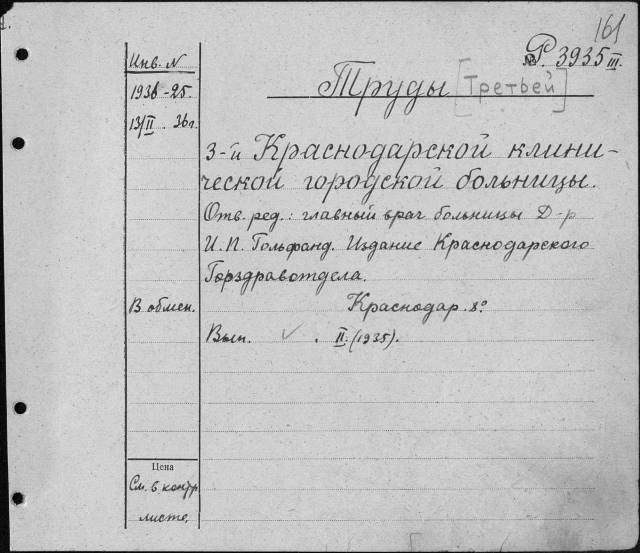 161
№ P 3935 III
Инв. N
1936-25.
13/II. 36 г.
Труды [Третьей]
3-й Краснодарской клини-
ческой городской больницы.
Отв. ред.: главный врач больницы Д-р
И. П. Гольфанд. Издание Краснодарского
Горздравотдела.
В обмен.
Краснодар. 8°
Вып. ✓ . II. (1935).
Цена
См. в контр
листе.